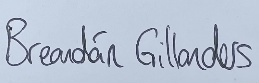 Breandán Gillanders